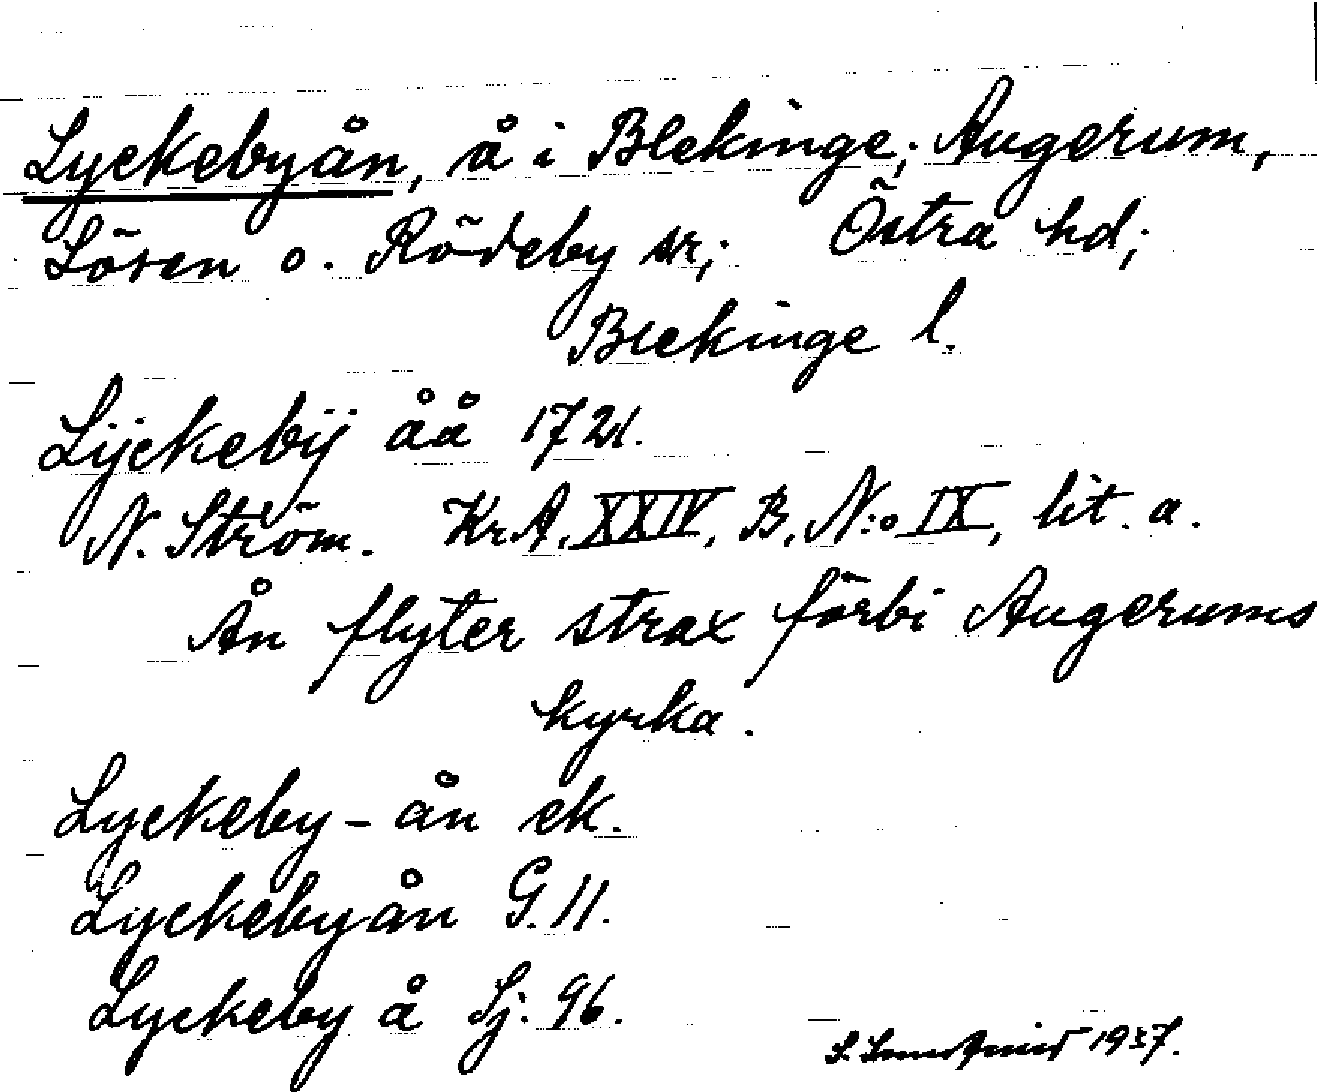 Lyckebyån, å i Blekinge; Augerum,
Lösen o. Rödeby sr; Östra hd;
Blekinge l.
Lijckebÿ åå 1721.
N. Ström. KrA. XXIV, B, N:o IX, lit. a.
Ån flyter strax förbi Augerums
kyrka.
Lyckeby-ån ek.
Lyckebyån G. 11.
Lyckeby å Sj. 96.
S. 1937.